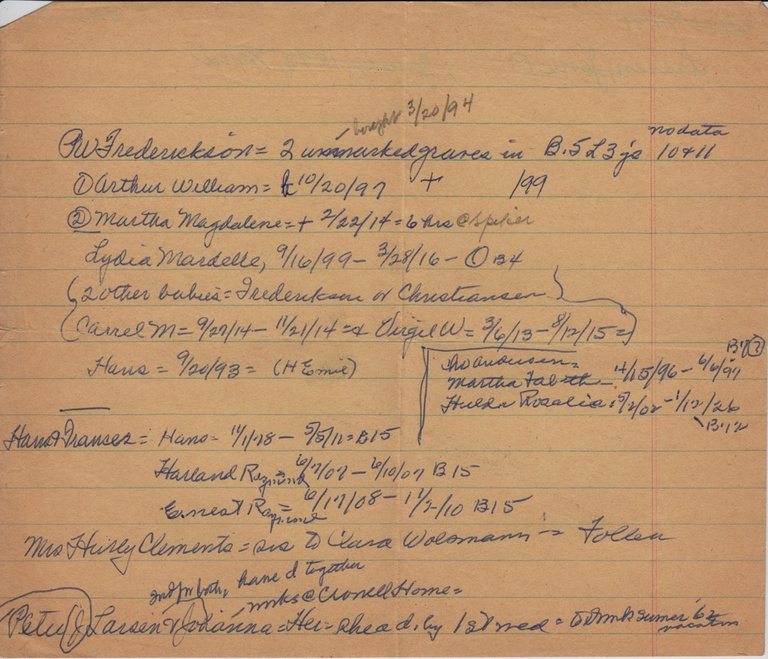 bought 3/20/94
PW Frederickson = 2 unmarked graves in B.5 L3 gs 10+11 no data
① Arthur William = 10/20/97 + /99
② Martha Magdalene = + 2/22/14 = 6 hrs @ Spiker
Lydia Mardelle, 9/16/99 - 3/28/16 - ① B4
(2 other babies = Frederickson or Christiansen)
(Carrel M = 9/27/14 - 11/21/14 = & Virgil W = 3/6/13 - 8/12/15 =)
Hans = 9/20/93 = (H Emil)
B17 ②
Martha - 4/15/96 - 6/6/97
Hulda Rosalia = 5/2/02 - 1/12/26
B.12
Hans & Frances = Hans = 11/1/78 - 5/5/11 = B15
Harland 6/7/07 - 6/10/07 B15
Ernest = 6/17/08 - 11/2/10 B15
Mrs Hurly Clements = sis to Clara Wolsmann =
have d together
mrks @ Crowell Home =
Peter (J) Larsen & Johanna = Her = ahead. by 1st wed = to drmk sumer '62
vacation